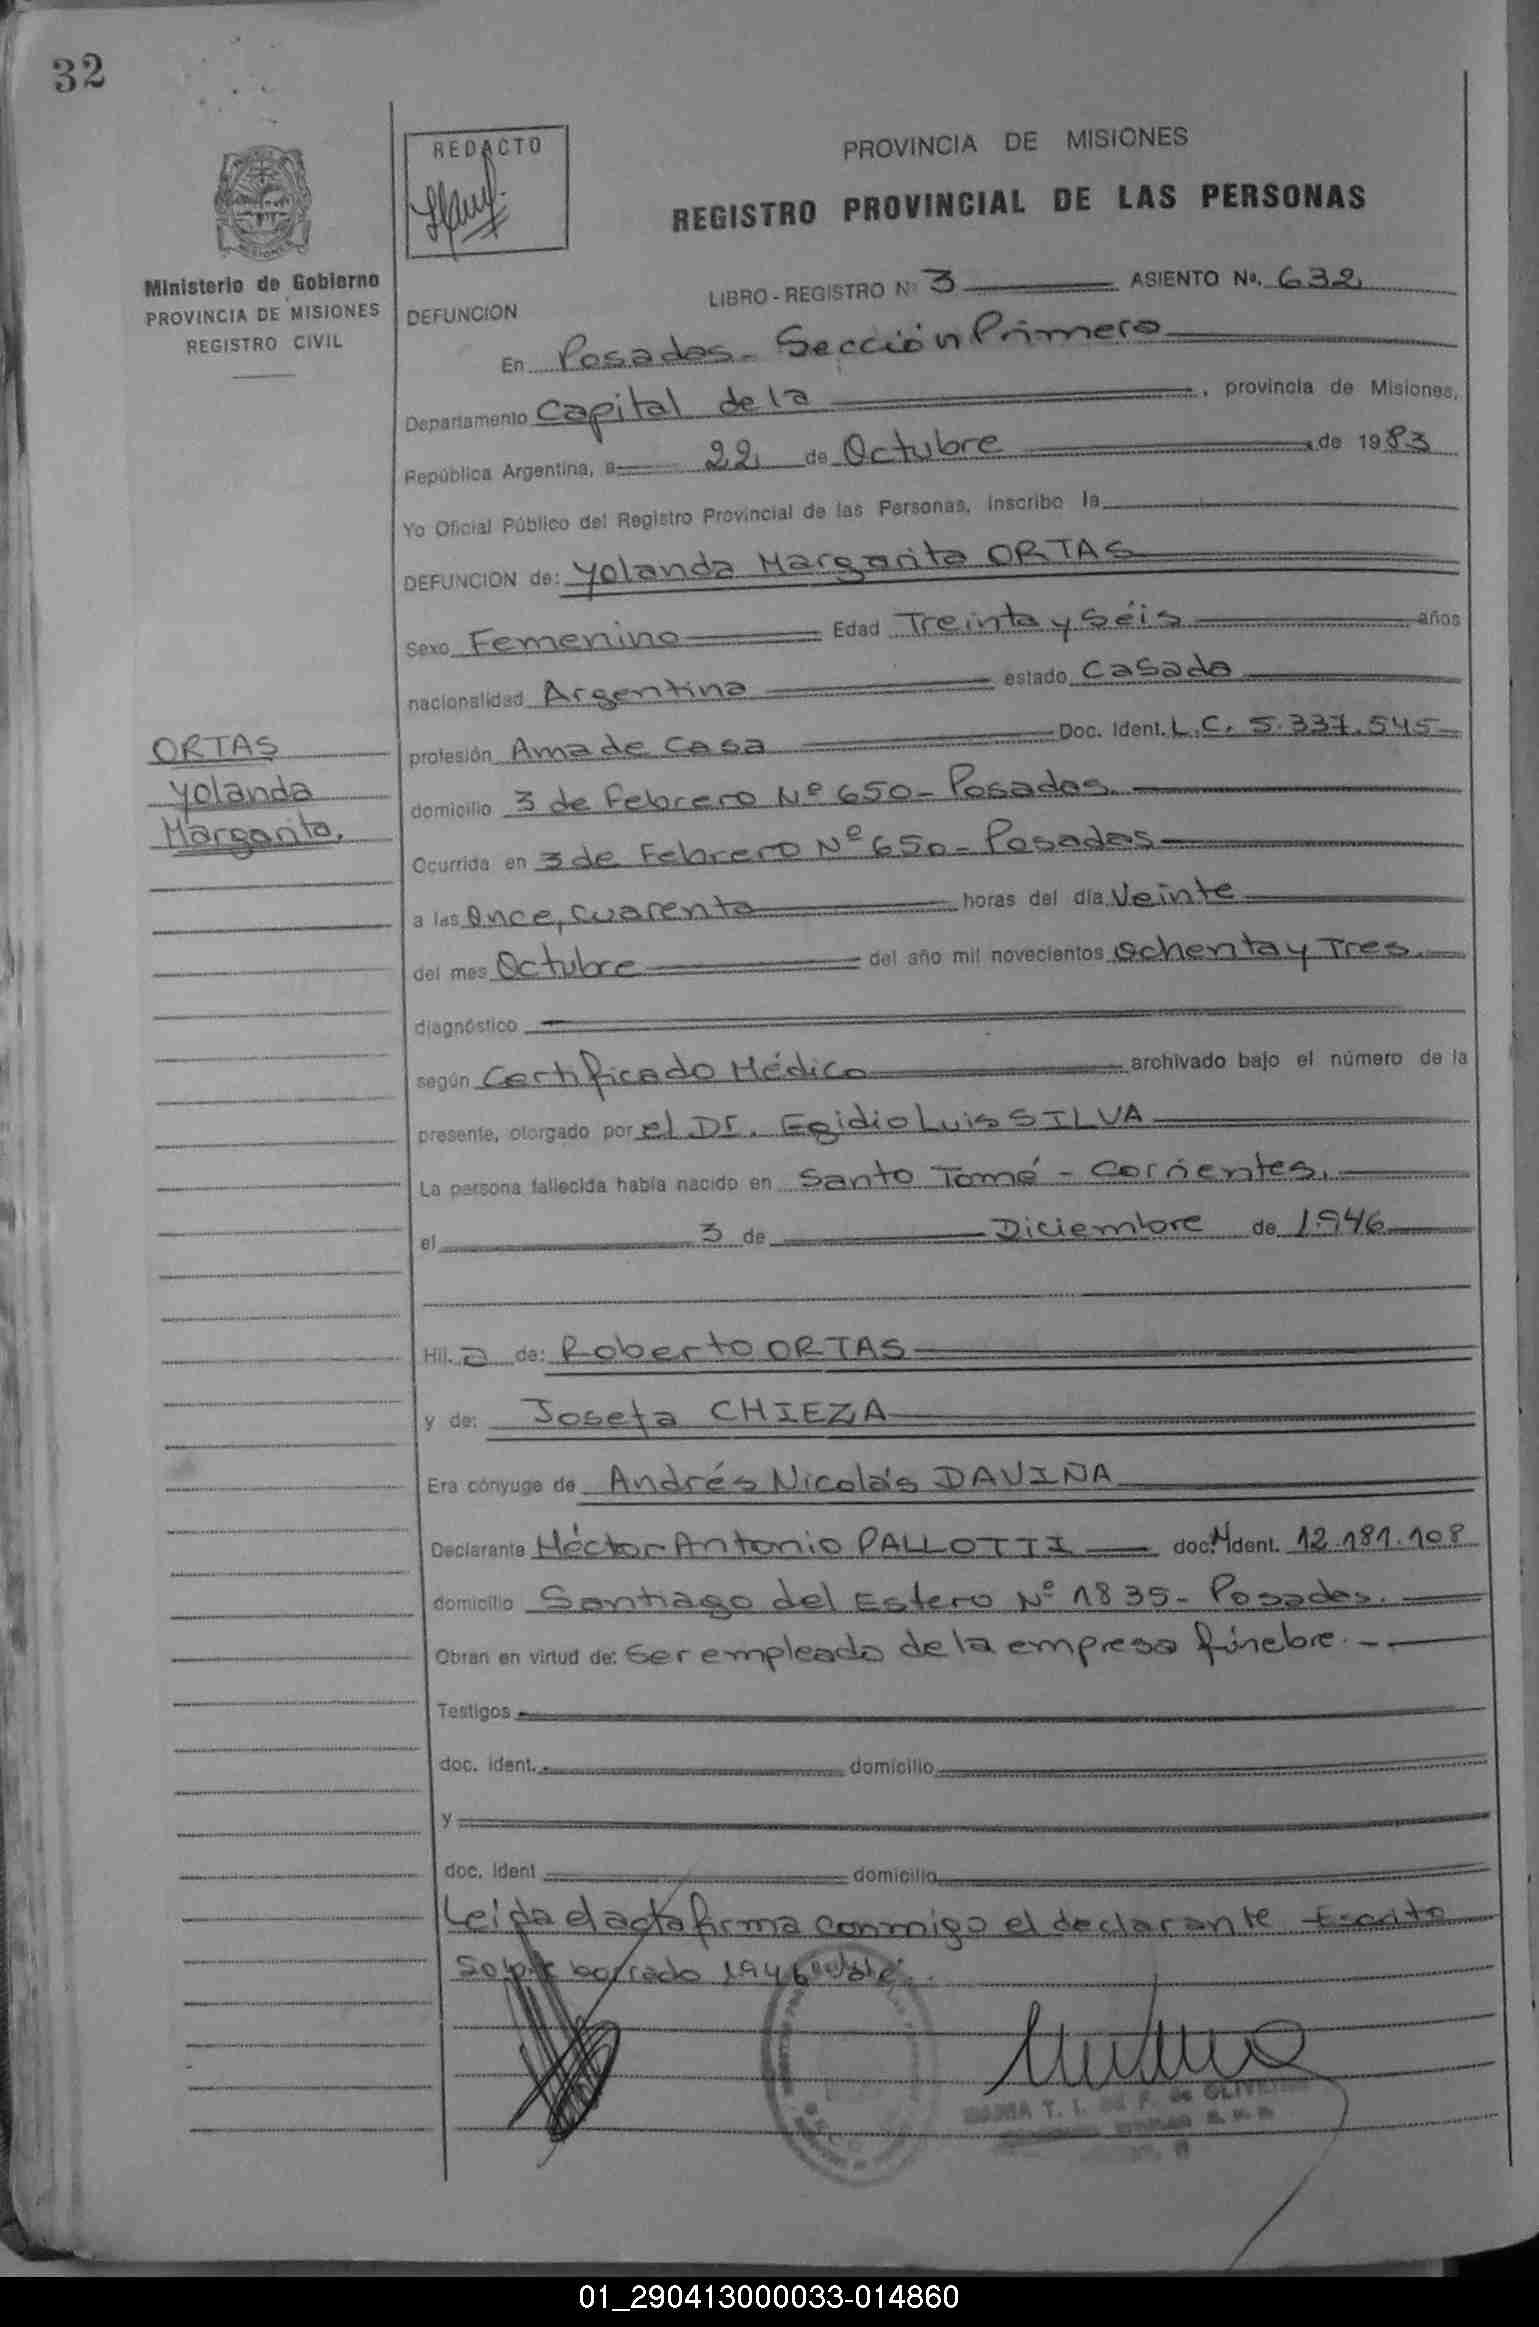 32
REDACTO
PROVINCIA DE MISIONES
REGISTRO PROVINCIAL DE LAS PERSONAS
Ministerio de Gobierno
PROVINCIA DE MISIONES
REGISTRO CIVIL
LIBRO - REGISTRO Nº 3 ASIENTO No. 632
DEFUNCION
En Posadas - Sección Primera
Departamento Capital de la , provincia de Misiones,
República Argentina, a 22 de Octubre de 1983
Yo Oficial Público del Registro Provincial de las Personas, inscribo la
DEFUNCION de: Yolanda Margarita ORTAS
Sexo Femenino Edad Treinta y Séis años
nacionalidad Argentina estado Casada
ORTAS
Yolanda
Margarita.
profesión Ama de Casa Doc. Ident. L.C. 5.337.545
domicilio 3 de Febrero Nº 650 - Posadas.
Ocurrida en 3 de Febrero Nº 650 - Posadas
a las Once, Cuarenta horas del día Veinte
del mes Octubre del año mil novecientos Ochenta y Tres.
diagnóstico
según Certificado Médico archivado bajo el número de la
presente, otorgado por el Dr. Egidio Luis SILVA
La persona fallecida había nacido en Santo Tomé - Corrientes.
el 3 de Diciembre de 1.946
Hij. a de: Roberto ORTAS
y de: Josefa CHIEZA
Era cónyuge de Andrés Nicolás DAVIÑA
Declarante Héctor Antonio PALLOTTI doc. M ident. 12.181.108
domicilio Santiago del Estero Nº 1835 - Posadas.
Obran en virtud de: Ser empleado de la empresa fúnebre. -
Testigos
doc. ident. domicilio
y
doc. ident domicilio
Leída el acta firma conmigo el declarante Escrito
Sobre borrado 1946 "Vale".
MARIA T. I. de F. de OLIVEIRA
01_290413000033-014860